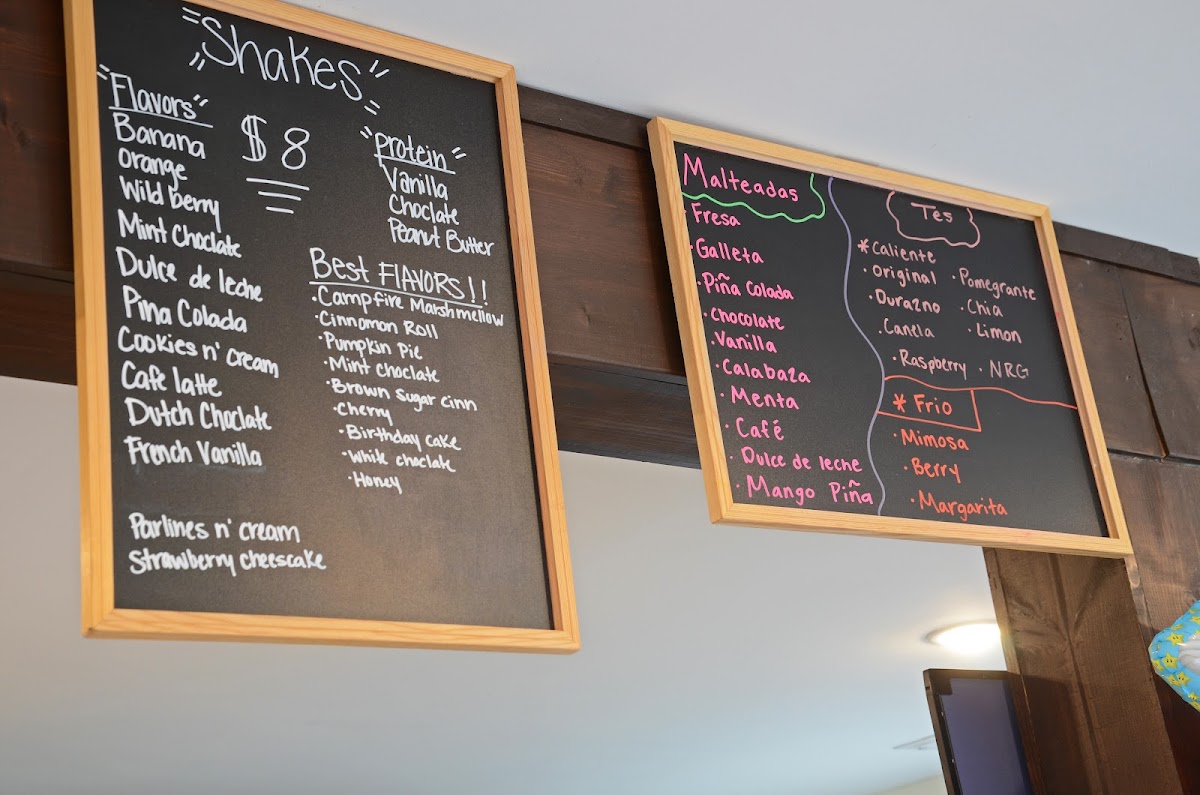 Shakes
$8
"Flavors"
Banana
Orange
Wild berry
Mint Choclate
Dulce de leche
Pina Colada
Cookies n' cream
Cafe latte
Dutch Choclate
French Vanilla
Parlines n' cream
Strawberry cheescake
"protein"
Vanilla
Choclate
Peanut Butter
Best FLAVORS!!
·Campfire Marshmellow
·Cinnomon Roll
·Pumpkin Pie
·Mint choclate
·Brown sugar cinn
·Cherry
·Birthday cake
·White choclate
·Honey
Malteadas
·Fresa
·Galleta
·Piña Colada
·Chocolate
·Vanilla
·Calabaza
·Menta
·Café
·Dulce de leche
·Mango Piña
Tes
*Caliente
·Original
·Durazno
·Canela
·Raspberry
·Pomegrante
·Chia
·Limon
·NRG
*Frio
·Mimosa
·Berry
·Margarita